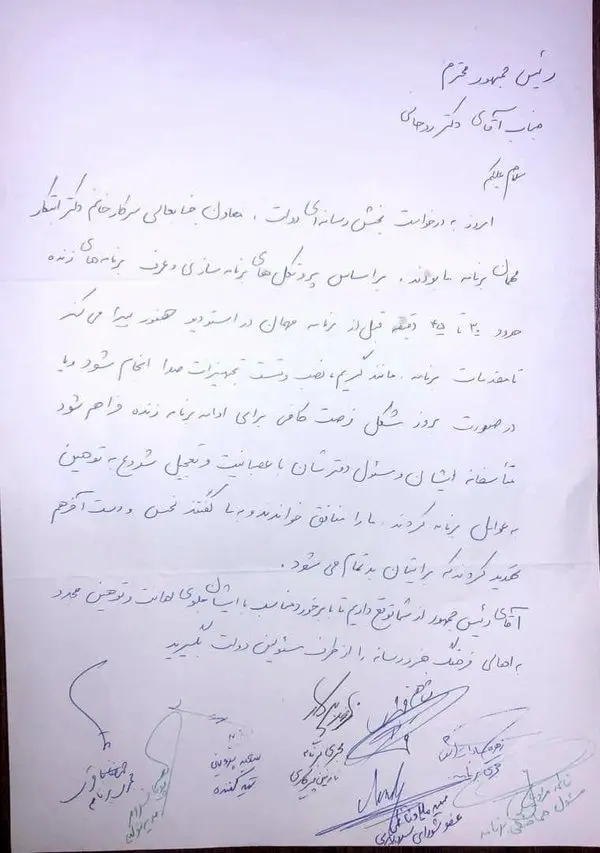 رئیس جمهور محترم
جناب آقای دکتر روحانی
سلام علیکم
امروز به درخواست بخش رسانه‌ای دولت ، معاون جنابعالی سرکار خانم دکتر ابتکار
مهمان برنامه ما بودند . براساس پروتکل‌های برنامه سازی و عرف برنامه‌های زنده
حدود ۳۰ تا ۴۵ دقیقه قبل از برنامه مهمان در استودیو حضور پیدا می‌کند
تا مقدمات برنامه ، مانند گریم ، نصب و تست تجهیزات صدا انجام شود و یا
در صورت بروز مشکل فرصت کافی برای ادامه برنامه زنده فراهم شود
متأسفانه ایشان و مسئول دفترشان با عصبانیت و تعجیل شروع به توهین
به عوامل برنامه کردند . ما را منافق خواندند و به ما گفتند نجس و دست آخر هم
تهدید کردند که برایتان بد تمام می شود .
آقای رئیس جمهور از شما توقع داریم تا با برخورد مناسب با ایشان جلوی اهانت و توهین مجدد
به اهالی فرهنگ هنر و رسانه را از طرف مسئولین دولت بگیرید
مجری برنامه
تهیه کننده
عضو شورای
مسئول هماهنگی برنامه